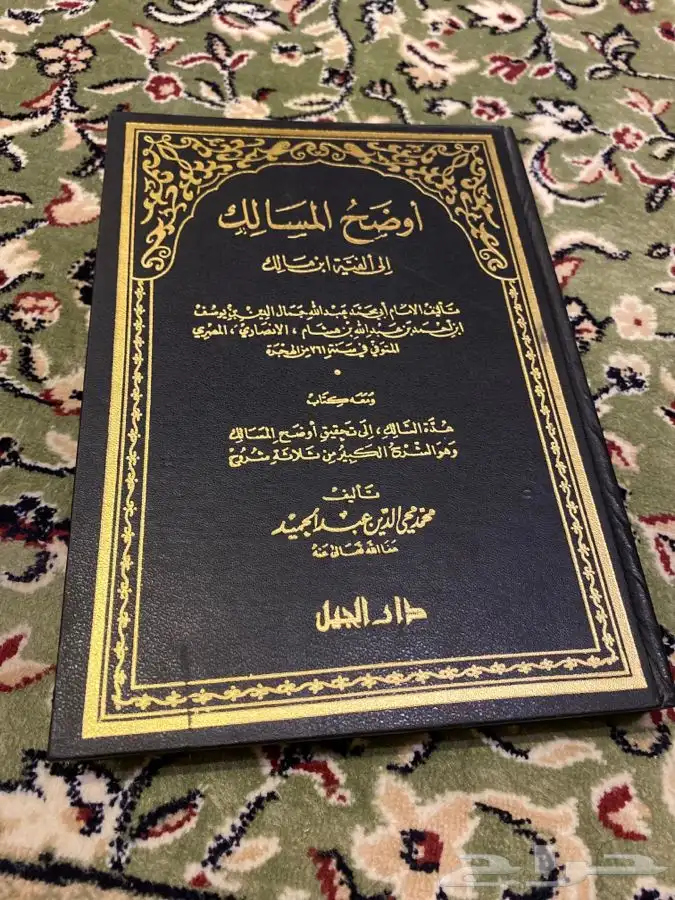 أوضَحُ المسَالِك
إلى ألفية ابن مالك
تأليف الإمام أبي محمد عبد الله جمال الدين بن يوسف
ابن أحمد بن عبد الله بن هشام، الأنصاري، المصري
المتوفى في سنة ٧٦١ من الهجرة
ومعه كتاب
هداية السالك، إلى تحقيق أوضح المسالك
وهو الشرح الكبير من ثلاثة شروح
تأليف
محمد محيي الدين عبد الحميد
عفا الله تعالى عنه
دار الجيل
حراج